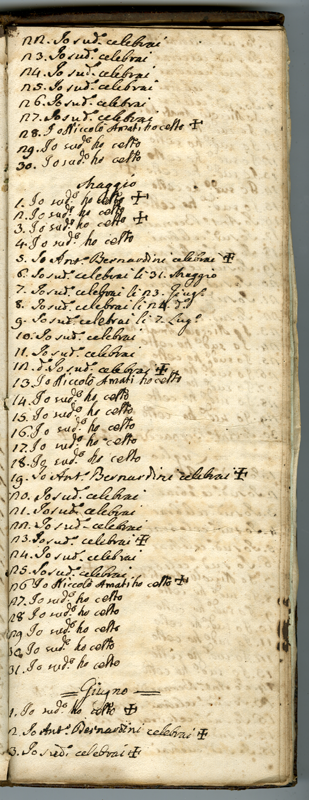 22. Io sud.º celebrai
23. Io sud.º celebrai
24. Io sud.º celebrai
25. Io sud.º celebrai
26. Io sud.º celebrai
27. Io sud.º celebrai
28. Io Niccolo Amati ho celto ✠
29. Io sud.º ho celto
30. Io sud.º ho celto
Maggio
1. Io sud.º ho celto ✠
2. Io sud.º ho celto
3. Io sud.º ho celto ✠
4. Io sud.º ho celto
5. Io Ant.º Bernardini celebrai ✠
6. Io sud.º celebrai li 31. Maggio
7. Io sud.º celebrai li 23. Giug.º
8. Io sud.º celebrai li 24. d.º
9. Io sud.º celebrai li 7. Lug.º
10. Io sud.º celebrai
11. Io sud.º celebrai
12. d.º Io sud.º celebrai ✠
13. Io Niccolo Amati ho celto
14. Io sud.º ho celto
15. Io sud.º ho celto
16. Io sud.º ho celto
17. Io sud.º ho celto
18. Io sud.º ho celto
19. Io Ant.º Bernardini celebrai ✠
20. Io sud.º celebrai
21. Io sud.º celebrai
22. Io sud.º celebrai
23. Io sud.º celebrai ✠
24. Io sud.º celebrai
25. Io sud.º celebrai
26 Io Niccolo Amati ho celto ✠
27. Io sud.º ho celto
28 Io sud.º ho celto
29 Io sud.º ho celto
30. Io sud.º ho celto
31. Io sud.º ho celto
= Giugno =
1. Io sud.º ho celto ✠
2. Io Ant.º Bernardini celebrai ✠
3. Io sud.º celebrai ✠